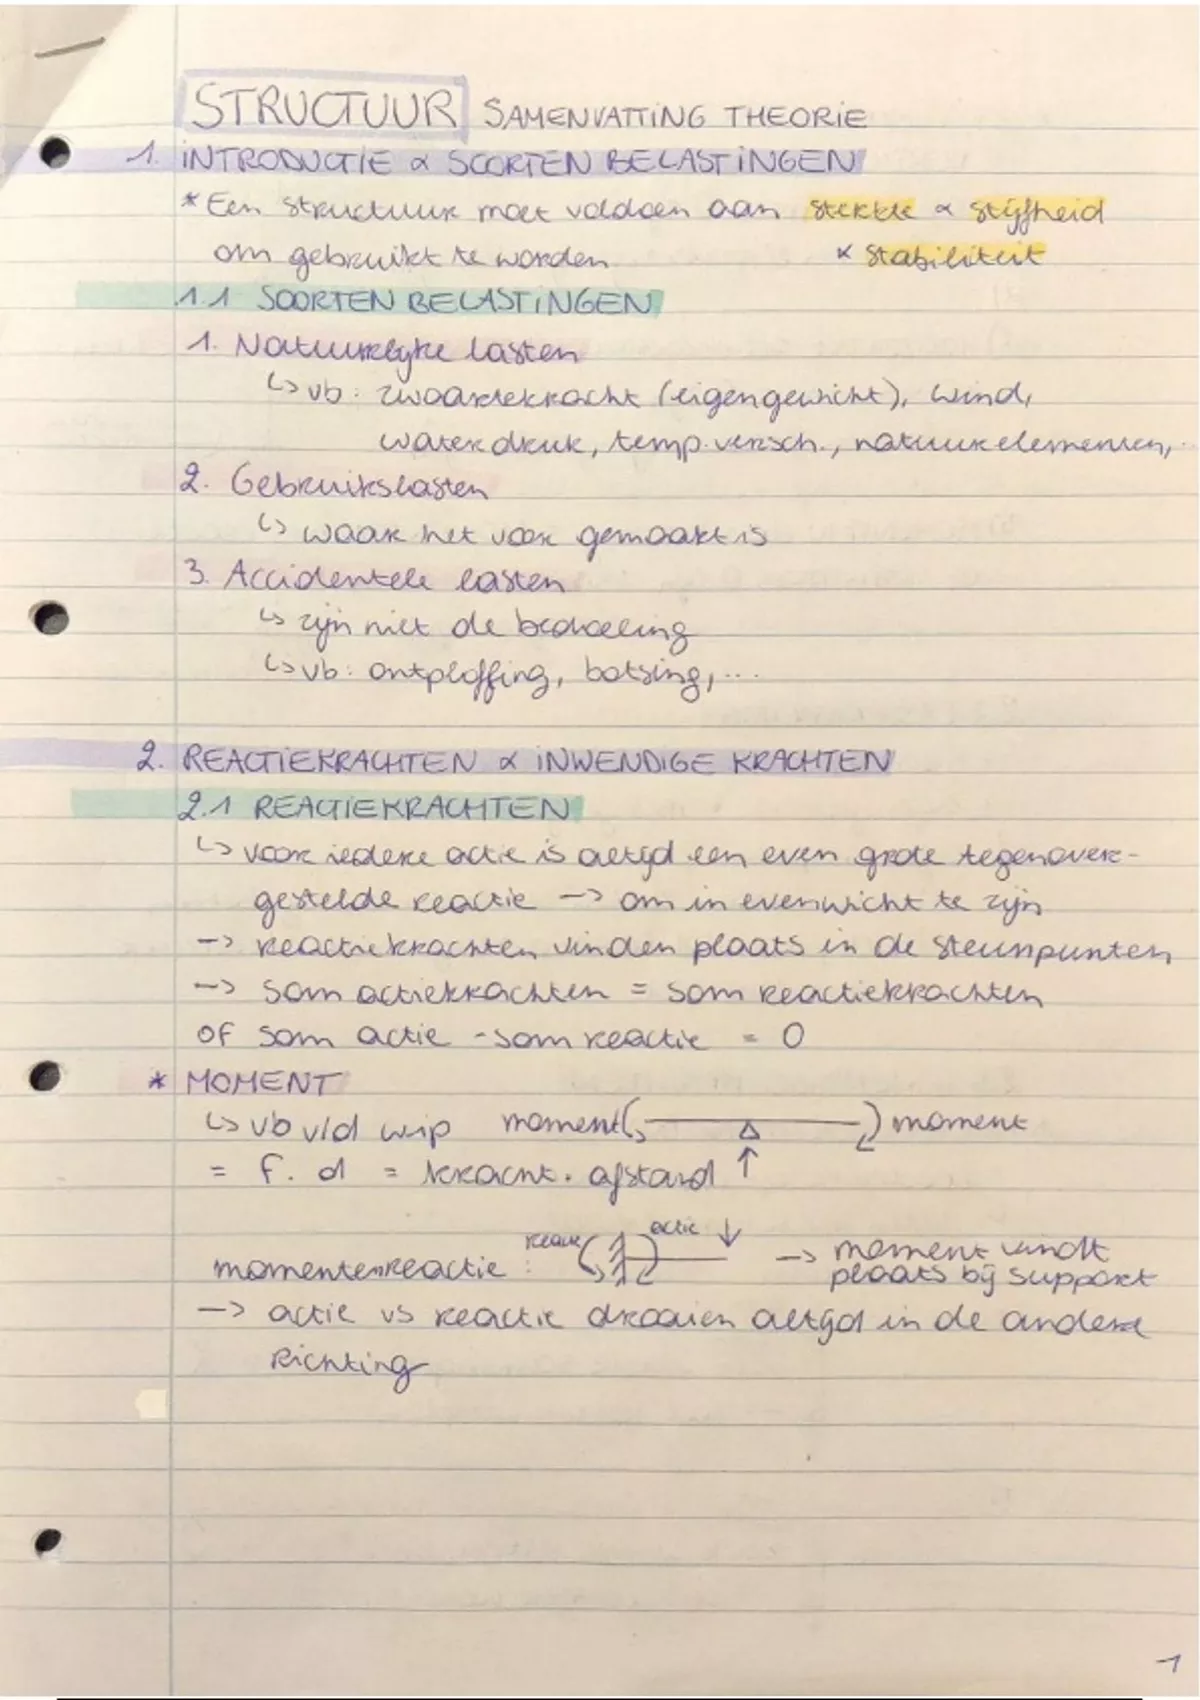 STRUCTUUR SAMENVATTING THEORIE
1. INTRODUCTIE & SOORTEN BELASTINGEN
* Een structuur moet voldoen aan sterkte & stijfheid
om gebruikt te worden & stabiliteit
1.1 SOORTEN BELASTINGEN
1. Natuurlijke lasten
↳ vb: zwaartekracht (eigengewicht), wind,
waterdruk, temp. versch., natuurelementen,..
2. Gebruikslasten
↳ waar het voor gemaakt is
3. Accidentele lasten
↳ zijn niet de bedoeling
↳ vb: ontploffing, botsing, ...
2. REACTIEKRACHTEN & INWENDIGE KRACHTEN
2.1 REACTIEKRACHTEN
↳ voor iedere actie is altijd een even grote tegenover-
gestelde reactie -> om in evenwicht te zijn
-> reactiekrachten vinden plaats in de steunpunten
-> som actiekrachten = som reactiekrachten
of som actie - som reactie = 0
* MOMENT
↳ vb v/d wip moment moment
= F. d = kracht. afstand ↑
reactie actie ↓
momentenreactie : -> moment vindt
plaats bij support
-> actie vs reactie draaien altijd in de andere
richting
1